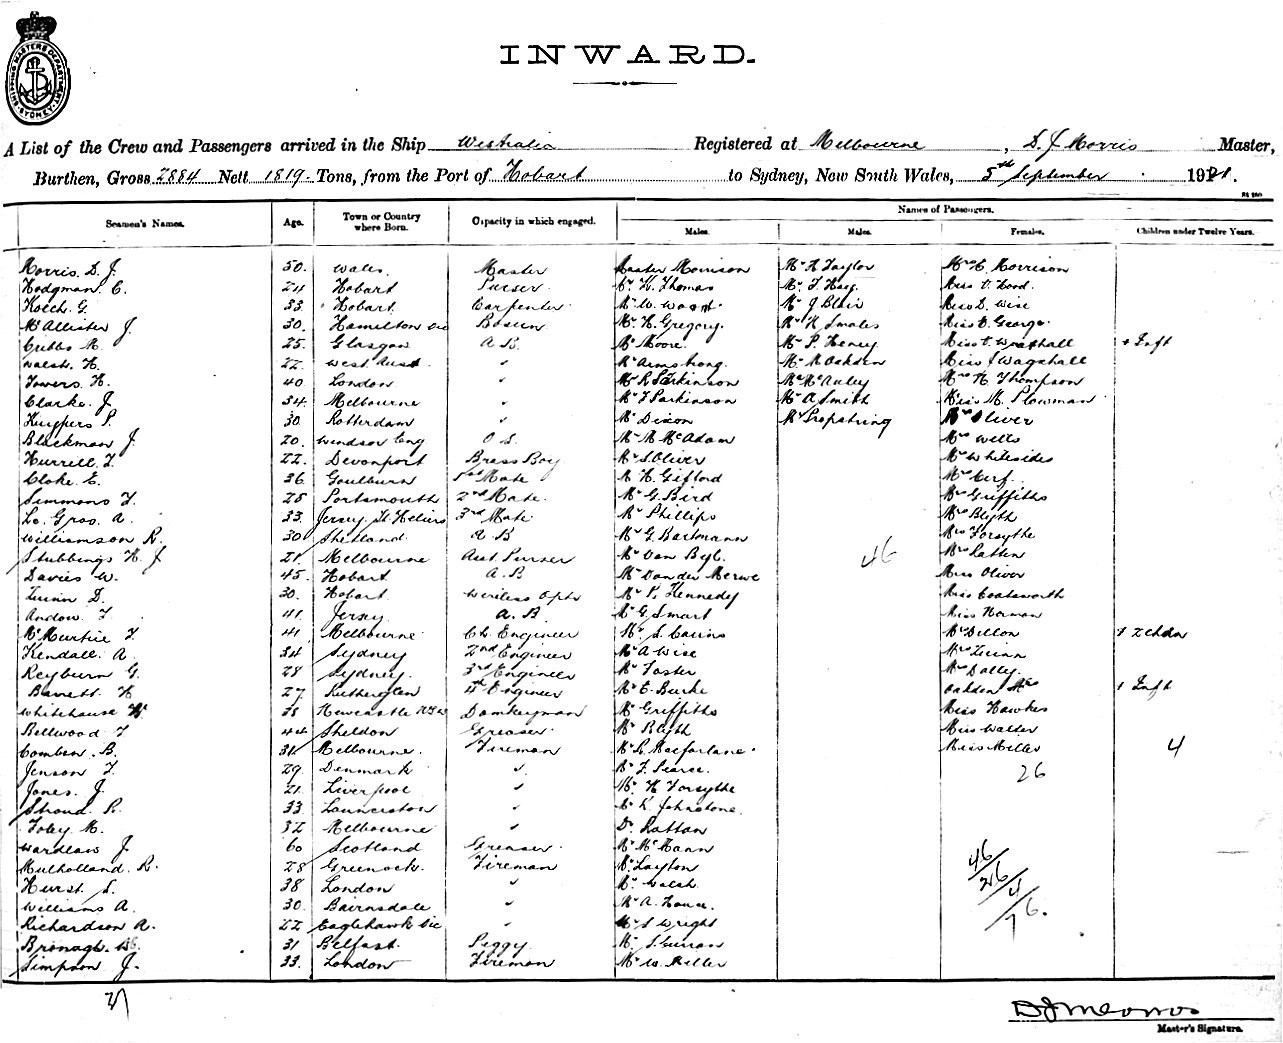 SHIPPING MASTERS DEPARTMENT SYDNEY
INWARD.
A List of the Crew and Passengers arrived in the Ship Westralia Registered at Melbourne, D. J Morris Master,
Burthen, Gross 2884 Nett 1819 Tons, from the Port of Hobart to Sydney, New South Wales, 5th September 1921.
Names of Passengers.
Seamen's Names. Age. Town or Country where Born. Capacity in which engaged. Males. Males. Females. Children under Twelve Years.
Morris. D. J. 50. Wales. Master Master Morrison Mr H Taylor Mrs E. Morrison
Hodgman. C. 24 Hobart Purser. Mr H. Thomas Mr T. Hay. Miss V. Hood.
Koech. G. 33. Hobart. Carpenter Mr W. Wood. Mr J Blair Miss D. Wise
McAllister J. 30. Hamilton Vic Bosun Mr H. Gregory. Mr H Smales Miss E. George.
Cribbs M. 25. Glasgow A. B. Mr Moore. Mr P. Heney Miss E. Wrathall + Inft
Walsh. H. 22. West Aust. " Mr Armstrong. Mr R Oakden Miss J Wagshall
Towers. H. 40. London " Mr R. Parkinson Mr McAuley Mrs H. Thompson
Clarke. J. 34. Melbourne " Mr T Parkinson Mr A Smith Miss M. Plowman
Kuypers P. 30. Rotterdam " Mr Dixon Mr Propsting Mrs Oliver
Blackman J. 20. Windsor Eng O S. Mr M McAdam Mrs Wells
Hurrill. T. 22. Devonport Brass Boy Mr S. Oliver Mrs Whitesides
Cloke. E. 36. Goulburn 1st Mate Mr H. Gifford Mrs Cerf.
Simmons T. 25 Portsmouth 2nd Mate. Mr G. Bird Mrs Griffiths
Le. Gros. A. 33. Jersey St. Heliers 3rd Mate Mr Phillips Mrs Blyth
Williamson R. 30 Shetland. A B Mr G. Bartmann Mrs Forsythe
Stubbings H. J 21. Melbourne Asst Purser Mr Van Byl. 46 Mrs Ratten
Davies W. 45. Hobart A. B Mr Van der Merwe Miss Oliver
Quinn D. 30. Hobart. Wireless Optr Mr P. Kennedy Miss Coatsworth
Andow. T. 41. Jersey. A. B. Mr G. Smart Miss Norman
McMurtrie T. 41 Melbourne Ch. Engineer Mr S. Cairns Mrs Dillon + 2 Chdn
Kendall. A. 34 Sydney 2nd Engineer Mr A Wise Mrs Quinn
Reyburn G. 28 Sydney. 3rd Engineer Mr Foster Mrs Dalley
Barrett. H 27. Rutherglen 4th Engineer Mr E. Burke Oakden Mrs + Inft
Whitehouse W. 38 Newcastle NSW Donkeyman Mr Griffiths Miss Hawkes
Bellwood T 44 Sheldon Greaser. Mr Blyth Miss Walter
Comben. B. 31. Melbourne. Fireman Mr R. Macfarlane. Miss Miller 4
Jenson T. 29. Denmark " Mr F. Pearce. 26
Jones. J. 21. Liverpool " Mr H Forsythe
Stroud R. 33. Launceston " Mr K Johnstone
Foley M. 32. Melbourne " Dr Ratten
Wardlaw J. 60 Scotland Greaser. Mr McMann 46
Mulholland. R. 28 Greenock. Fireman Mr Layton 26
Hurst. S. 38 London " Mr Walsh. 4
Williams A. 30. Bairnsdale " Mr A. Hower. 76.
Richardson A. 22 Eaglehawk Vic " Mr S Wright
Bronagh. W. 31 Belfast. Peggy Mr Curran
Simpson J. 33. London Fireman Mr W. Miller
37
D J Morris
Master's Signature.